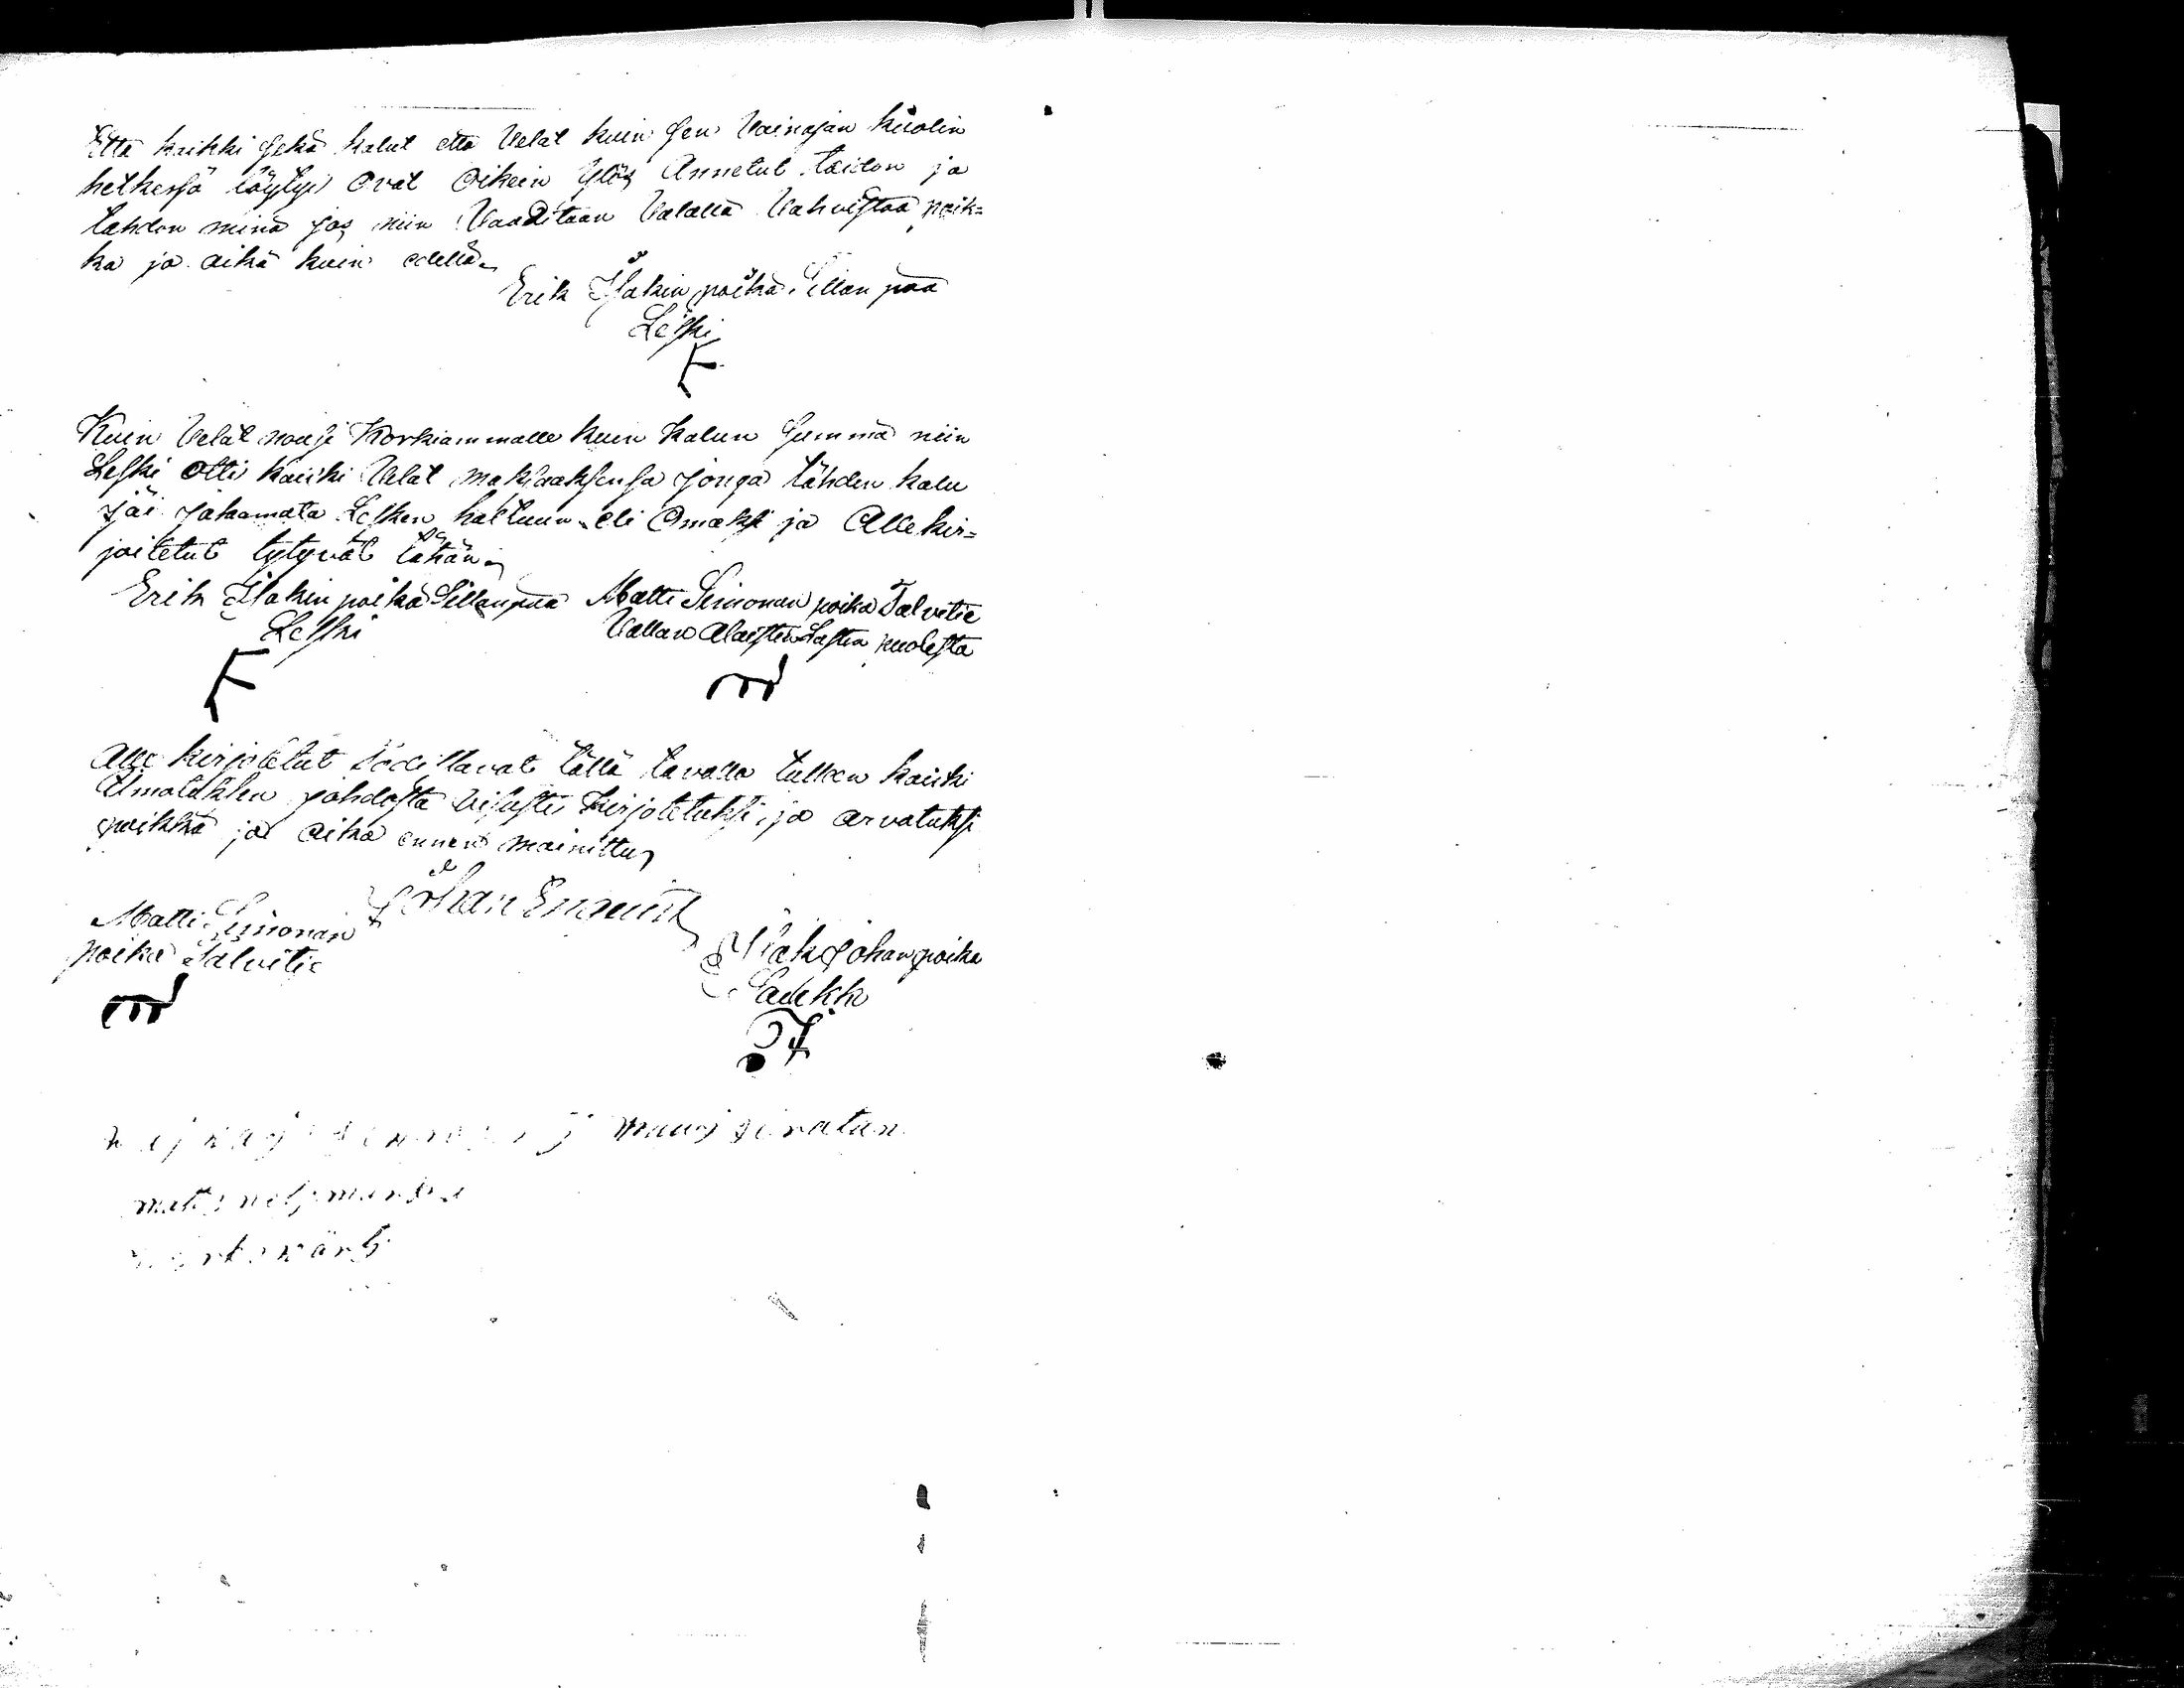 Että kaikki sekä kalut että Velat kuin sen Vainajan kuolin
hetkessä löytyi Ovat Oikein Ylös Annetut taidon ja
tahdon minä jos niin Vaaditaan Valalla Vahvistaa paik=
ka ja aika kuin edellä
Erik Isakin poika Sillanpää
Leski
Kuin Velat nousi Korkiammalle kuin kalun Summa niin
Leski Otti kaikki Velat maksaaksensa jonga tähden kalu
jäi jakaamata Lesken haltuun eli Omaksi ja Allekir=
joitetut tytyvät tähän
Erik Isakin poika Sillanpää Matti Simonan poika Talvitie
Leski Vallan Alaisten Lasten puolesta
Alle kirjotetut todistavat tällä tavalla tulleen kaikki
Ilmotuksen johdosta visusti kirjotetuksi ja arvatuksi
paikka ja aika ennen mainittu
Johan
Matti Simonan
poika Talvitie
Isak Johan poika